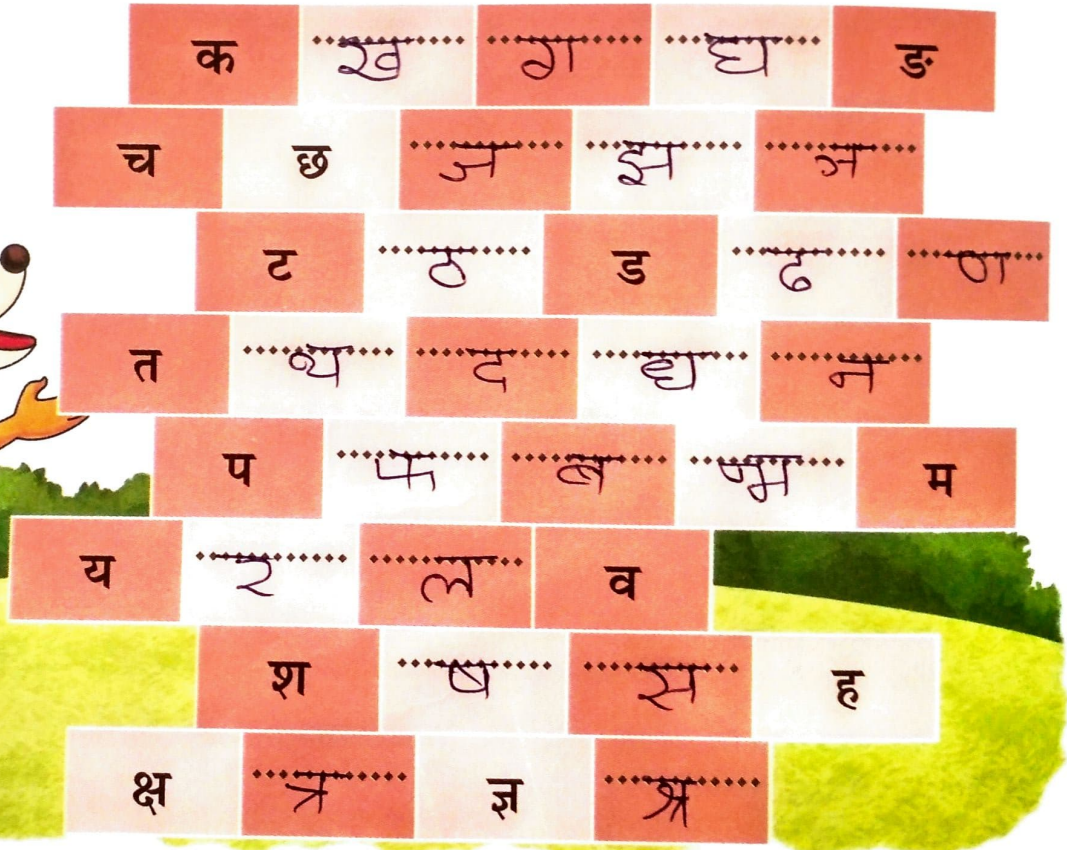 क ख ग घ ङ
च छ ज झ ञ
ट ठ ड ढ ण
त थ द ध न
प फ ब भ म
य र ल व
श ष स ह
क्ष त्र ज्ञ श्र